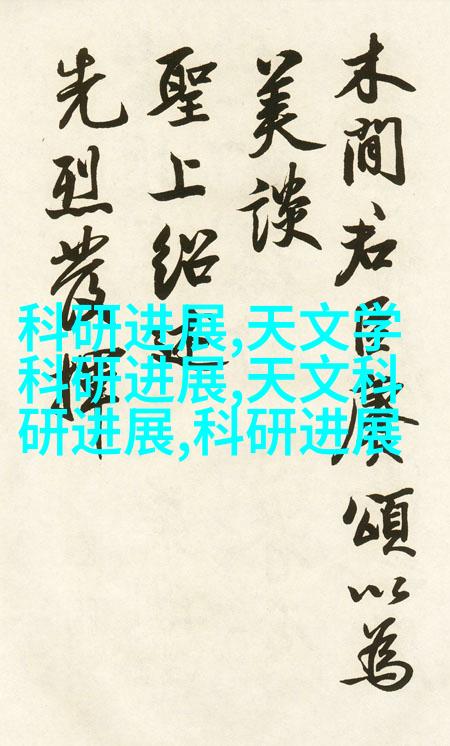 木間君臣賡頌以為
美談
聖上紹述
先烈發揮
科研进展,天文学
科研进展,天文科
研进展,科研进展